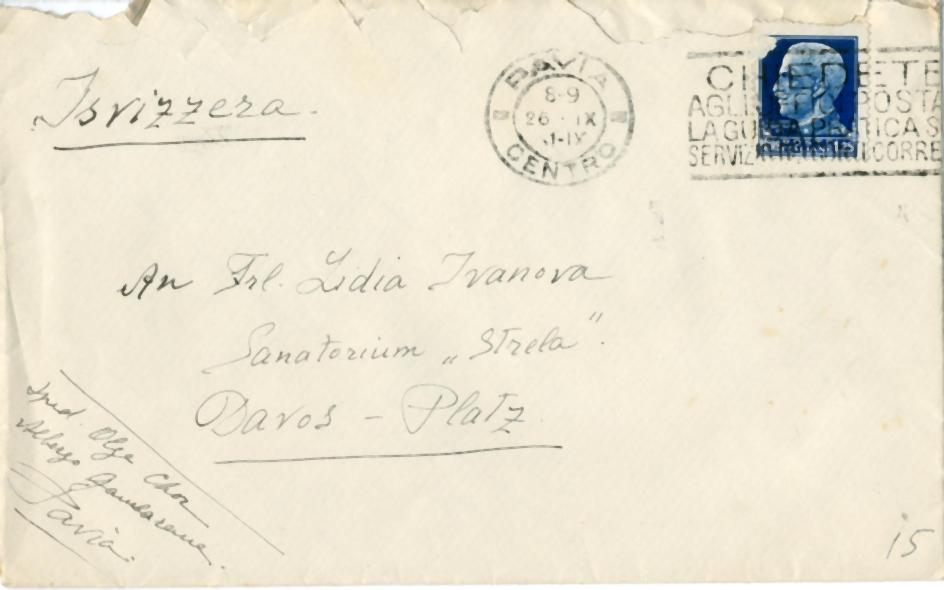 Isvizzera.
PAVIA
CENTRO
8-9
26 · IX
CHIEDETE
AGLI POSTA
LA GUIDA PRATICA
SERVIZI CORRE
An Frl. Lidia Ivanova
Sanatorium „Strela".
Davos - Platz
Sped. Olga Chor
Albergo Gambarana.
Pavia.
15